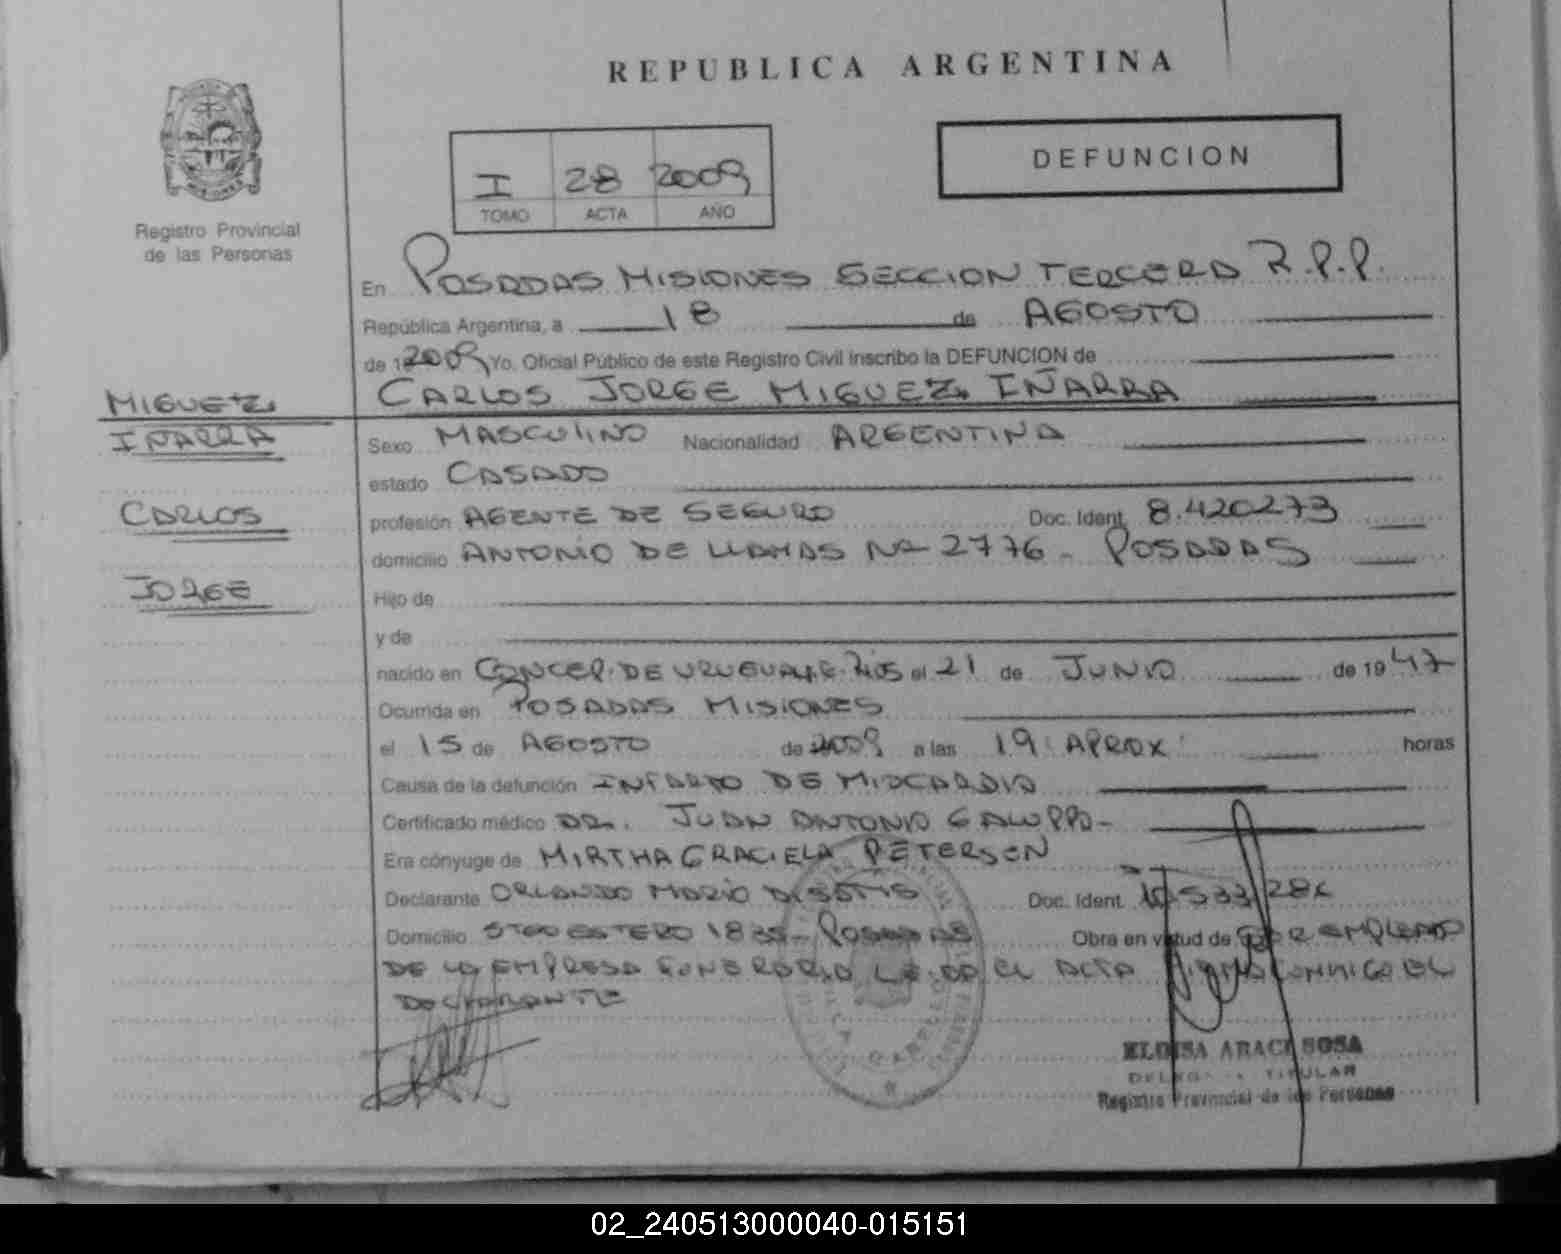 REPUBLICA ARGENTINA
DEFUNCION
I 28 2009
TOMO ACTA AÑO
Registro Provincial
de las Personas
En POSADAS MISIONES SECCION TERCERA R.P.P.
República Argentina, a 18 de AGOSTO
de 12009 Yo. Oficial Público de este Registro Civil inscribo la DEFUNCION de
CARLOS JORGE MIGUEZ IÑARRA
MIGUEZ
IÑARRA
CARLOS
JORGE
Sexo MASCULINO Nacionalidad ARGENTINA
estado CASADO
profesión AGENTE DE SEGURO Doc. Ident. 8.420273
domicilio ANTONIO DE LLAMAS Nº 2776 - POSADAS
Hijo de
y de
nacido en CONCEP. DE URUGUAY E. RIOS el 21 de JUNIO de 1947
Ocurrida en POSADAS MISIONES
el 15 de AGOSTO de 2009 a las 19 APROX horas
Causa de la defunción INFARTO DE MIOCARDIO
Certificado médico DR. JUAN ANTONIO GALUPPO-
Era cónyuge de MIRTHA GRACIELA PETERSEN
Declarante ORLANDO MARIO Doc. Ident.
Domicilio STGO ESTERO 1835 - POSADAS Obra en virtud de SER EMPLEADO
DE LA EMPRESA FUNERARIA LEIDA EL ACTA FIRMA CONMIGO EL
DECLARANTE
ELOISA ARACI SOSA
DELEGADA TITULAR
Registro Provincial de las Personas
02_240513000040-015151